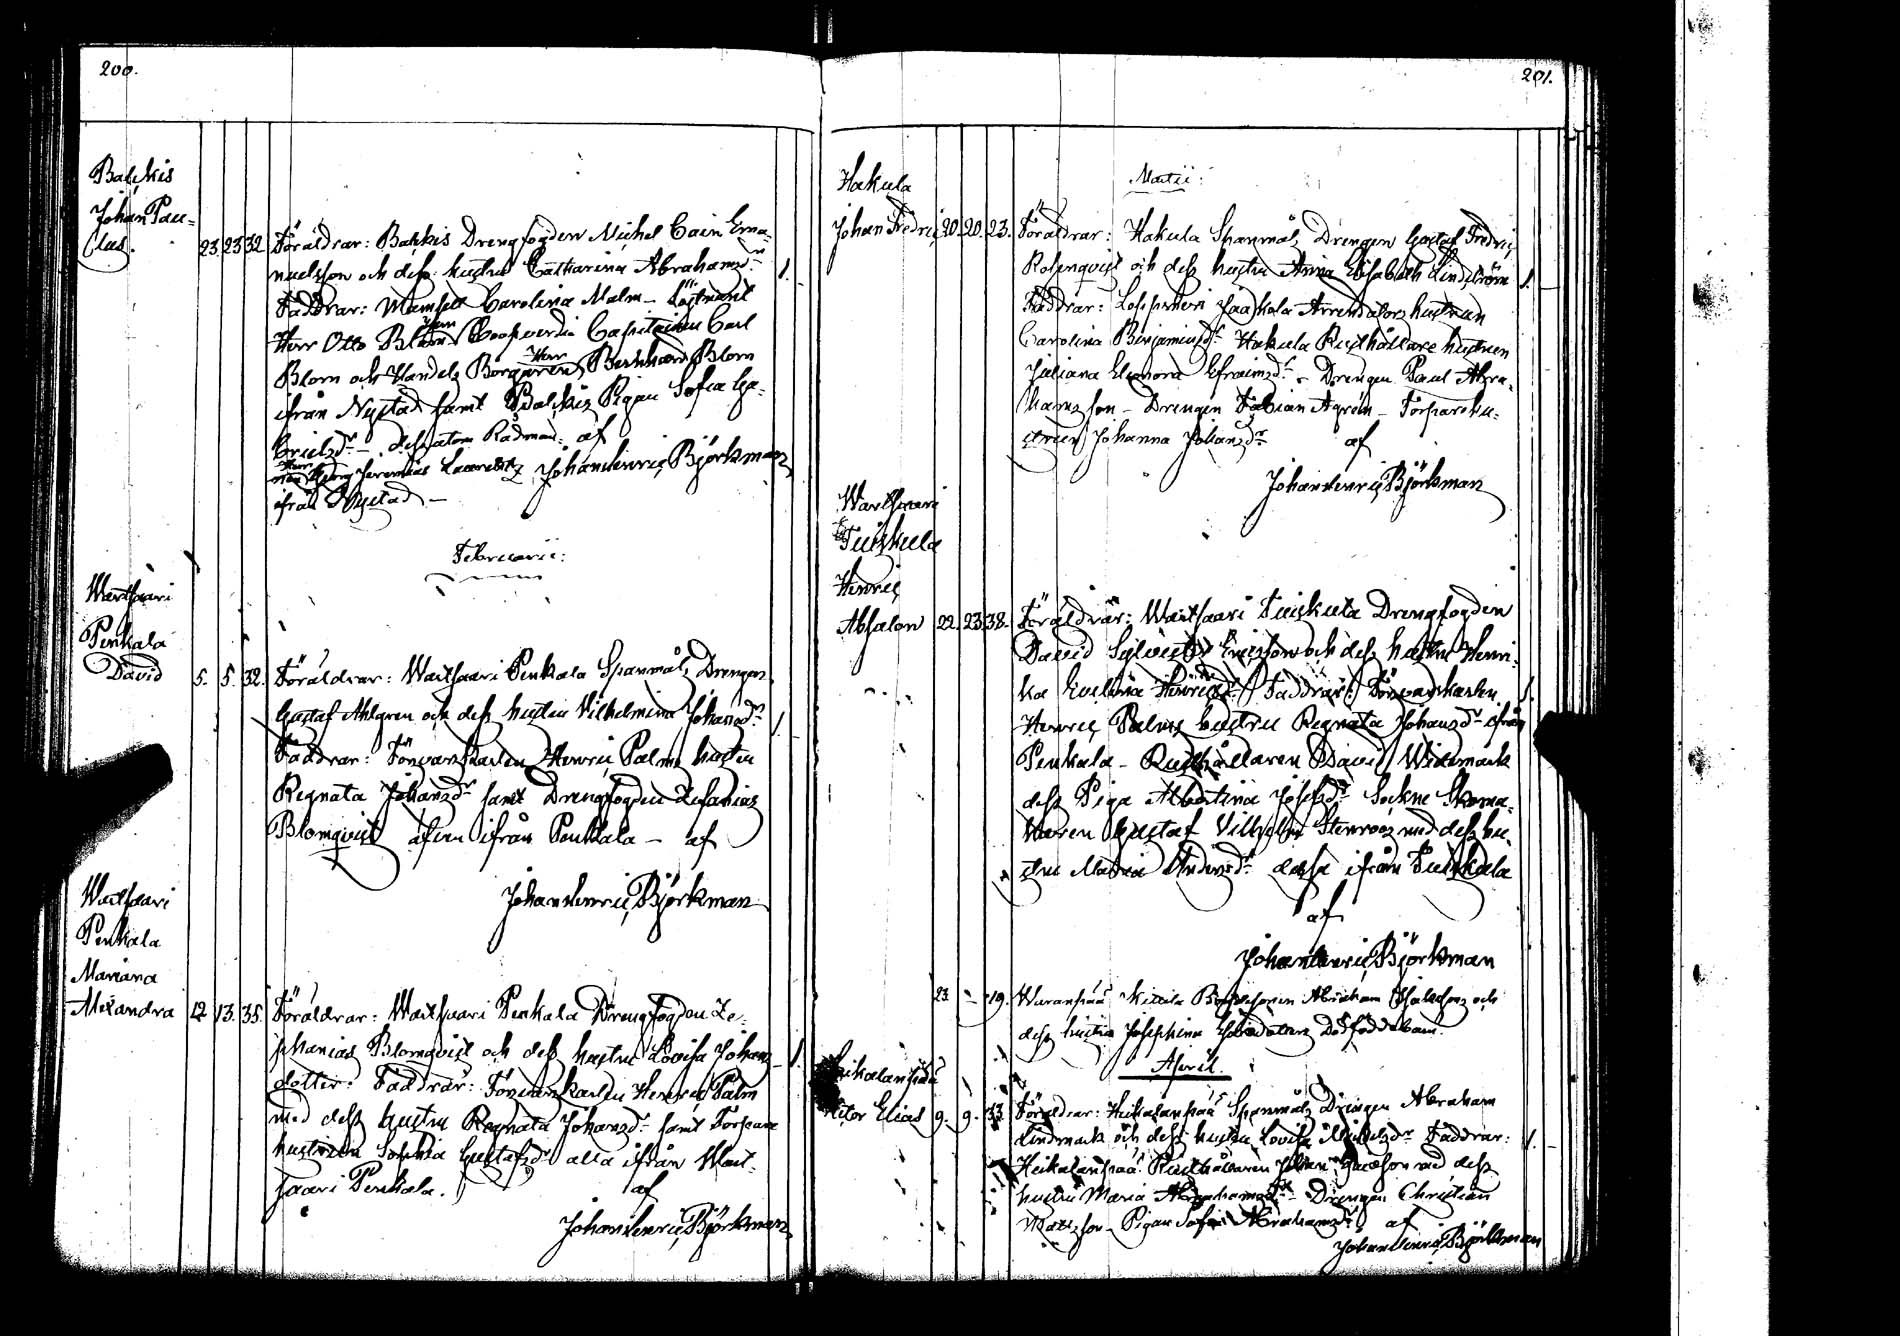 200.
Balckis
Johan Pau=
lus.
23. 23 32. Föräldrar: Balckis Drengfogden Michel Cain Ema=
nuelsson och dess hustru Catharina Abrahamsdr 1.
Faddrar: Mamsell Carolina Malm –
Herr Otto Blom Coopverdie Capitainen Carl
Blom och Handels Borgaren Herr Bernhard Blom
ifrån Nystad samt Balckis Pigan Sofia Ga=
brielsdr – dessutom Rådman= af
nen Herr Georg Jeremias Johan Henric Björkman
ifrån Nystad –
Februarii:
Wartsaari
Penkala
David
5. 5. 32. Föräldrar: Wartsaari Penkala Spanmåls Drengen
Gustaf Ahlgren och dess hustru Vilhelmina Johansdr 1.
Faddrar: Försvarskarlen Henric Palms hustru
Regnata Johansdr samt Drengfogden Zefanias
Blomqvist äfven ifrån Penkala – af
Johan Henric Björkman
Wartsaari
Penkala
Mariana
Alexandra 12 13. 35. Föräldrar: Wartsaari Penkala Drengfogden Ze=
phanias Blomqvist och dess hustru Lovisa Johans 1.
dotter: Faddrar: Försvarskarlen Henric Palm
med dess hustru Regnata Johansdr samt Torpare
hustrun Sophia Gustafsdr alla ifrån Wart=
saari Penkala. af
Johan Henric Björkman
201.
Martii:
Hakula
Johan Fredric 20. 20. 23. Föräldrar: Hakula Spanmåls Drengen Gustaf Fredric
Rosenqvist och dess hustru Anna Elisabeth Lindström 1.
Faddrar: Jaakola Arrendators hustrun
Carolina Benjaminsdr Hakula Rusthållare hustrun
Juliana Eleonora Efraimsdr – Drengen Paul Abra=
hamsson – Drengen Fabian Agrén – Torparehu=
strun Johanna Johansdr af
Johan Henric Björkman
Wartsaari
Tuiskula
Henric
Absalon 22. 23 38. Föräldrar: Wartsaari Tuiskula Drengfogden
David Sylvester Ericsson och dess hustru Henri=
ka Evelina Henricsdr Faddrar: Försvarskarlen 1.
Henric Palms hustru Regnata Johansdr ifrån
Penkala – Rusthållaren David Widemark
dess Piga Albertina Josefsdr Sockne Skoma=
karen Gustaf Vilhelm Stenroos med dess hu=
stru Maria Andersdr dessa ifrån Tuiskula
af
Johan Henric Björkman
23. – 19. Waranpää Abraham och
dess hustru Josephina Dödfödda barn.
April.
Heikalanpää
Victor Elias 9. 9. 33. Föräldrar: Heikalanpää Spanmåls Drengen Abraham
Lindmark och dess hustru Lovisa Michelsdr Faddrar: 1.
Heikalanpää Rusthållaren Johan med dess
hustru Maria Abrahamsdr – Drengen Christian
Matsson – Pigan Sofia Abrahamsdr af
Johan Henric Björkman